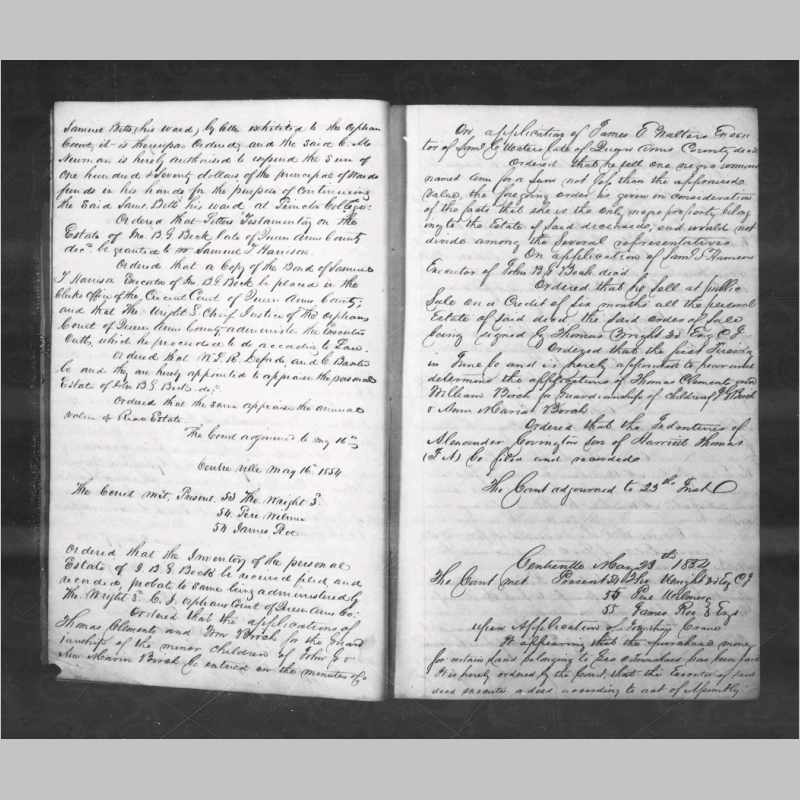 Samuel Betts, his ward, by letter exhibited to the Orphan
Court, it is thereupon Ordered and the said
Newnam is hereby authorised to expend the Sum of
One hundred & Seventy dollars of the principal of Wards
funds in his hands for the purposes of Continueing
the Said Saml. Betts his ward at College:
Ordered that letters Testamentary on the
Estate of B G Bock late of Queen Anns County
decd. be granted to Samuel T Harrison.
Ordered that a Copy of the Bond of Samuel
T Harrison Executor of B G Bock be placed in the
Clerks office of the Circuit Court of Queen Anns County;
and that Tho. Wright 3. Chief Justice of the Orphans
Court of Queen Anns County administer the Executors
Oath, which he proceeded to do according to Law.
Ordered that W. R. and C.
be and they are hereby appointed to appraise the personal
Estate of B G Bock decd.
Ordered that the same appraise the annual
value of Real Estate.
The Court adjourned to may 16th
Centreville May 16th 1854
The Court met, Present, 53 Tho. Wright 3d
54. Pere Wilmer
54 James Roe
Ordered that the Inventory of the personal
Estate of J. B G Bock be received filed and
recorded, probate to same being administered by
Tho. Wright 3d C. J. orphans Court of Queen Anns Co:
Ordered that the applications of
Thomas Clements and Wm Borah for the Guard
ianship of the minor Children of John G &
Ann Maria Borah be entered on the minutes of
On application of James E Walters Execu
tor of G Waters late of Queen Anns County decd.
Ordered that he sell one negro woman
named for a Sum not less than the appraised
value, the foregoing order is given in consideration
of the facts that she is the only negro property belong
ing to the Estate of said deceased, and would not
divide among the Several representatives
On application of Saml. T Harrison
Executor of John B G Bock decd
Ordered that he sell at public
Sale on a Credit of six months all the personal
Estate of said decd. the said order of Sale
being signed by Thomas Wright 3d Esq C J
Ordered that the first Tuesday
in June be and is hereby appointed to hear and
determine the applications of Thomas Clements and
William Borah for Guardianship of children of J G Borah
& Ann Maria Borah
Ordered that the Indentures of
Alexander Covington son of Harriett Thomas
be filed and recorded.
The Court adjourned to 23th Inst
Centreville May 23th 1854
The Court met Present 53 Tho Wright 3d Esq C J
54 Pere Wilmer
55 James Roe & Esqs
upon Application of Crane
It appearing that the purchase money
for certain land belonging to has been paid
It is hereby ordered by the Court, that the Executor of said
decd execute a deed according to act of Assembly